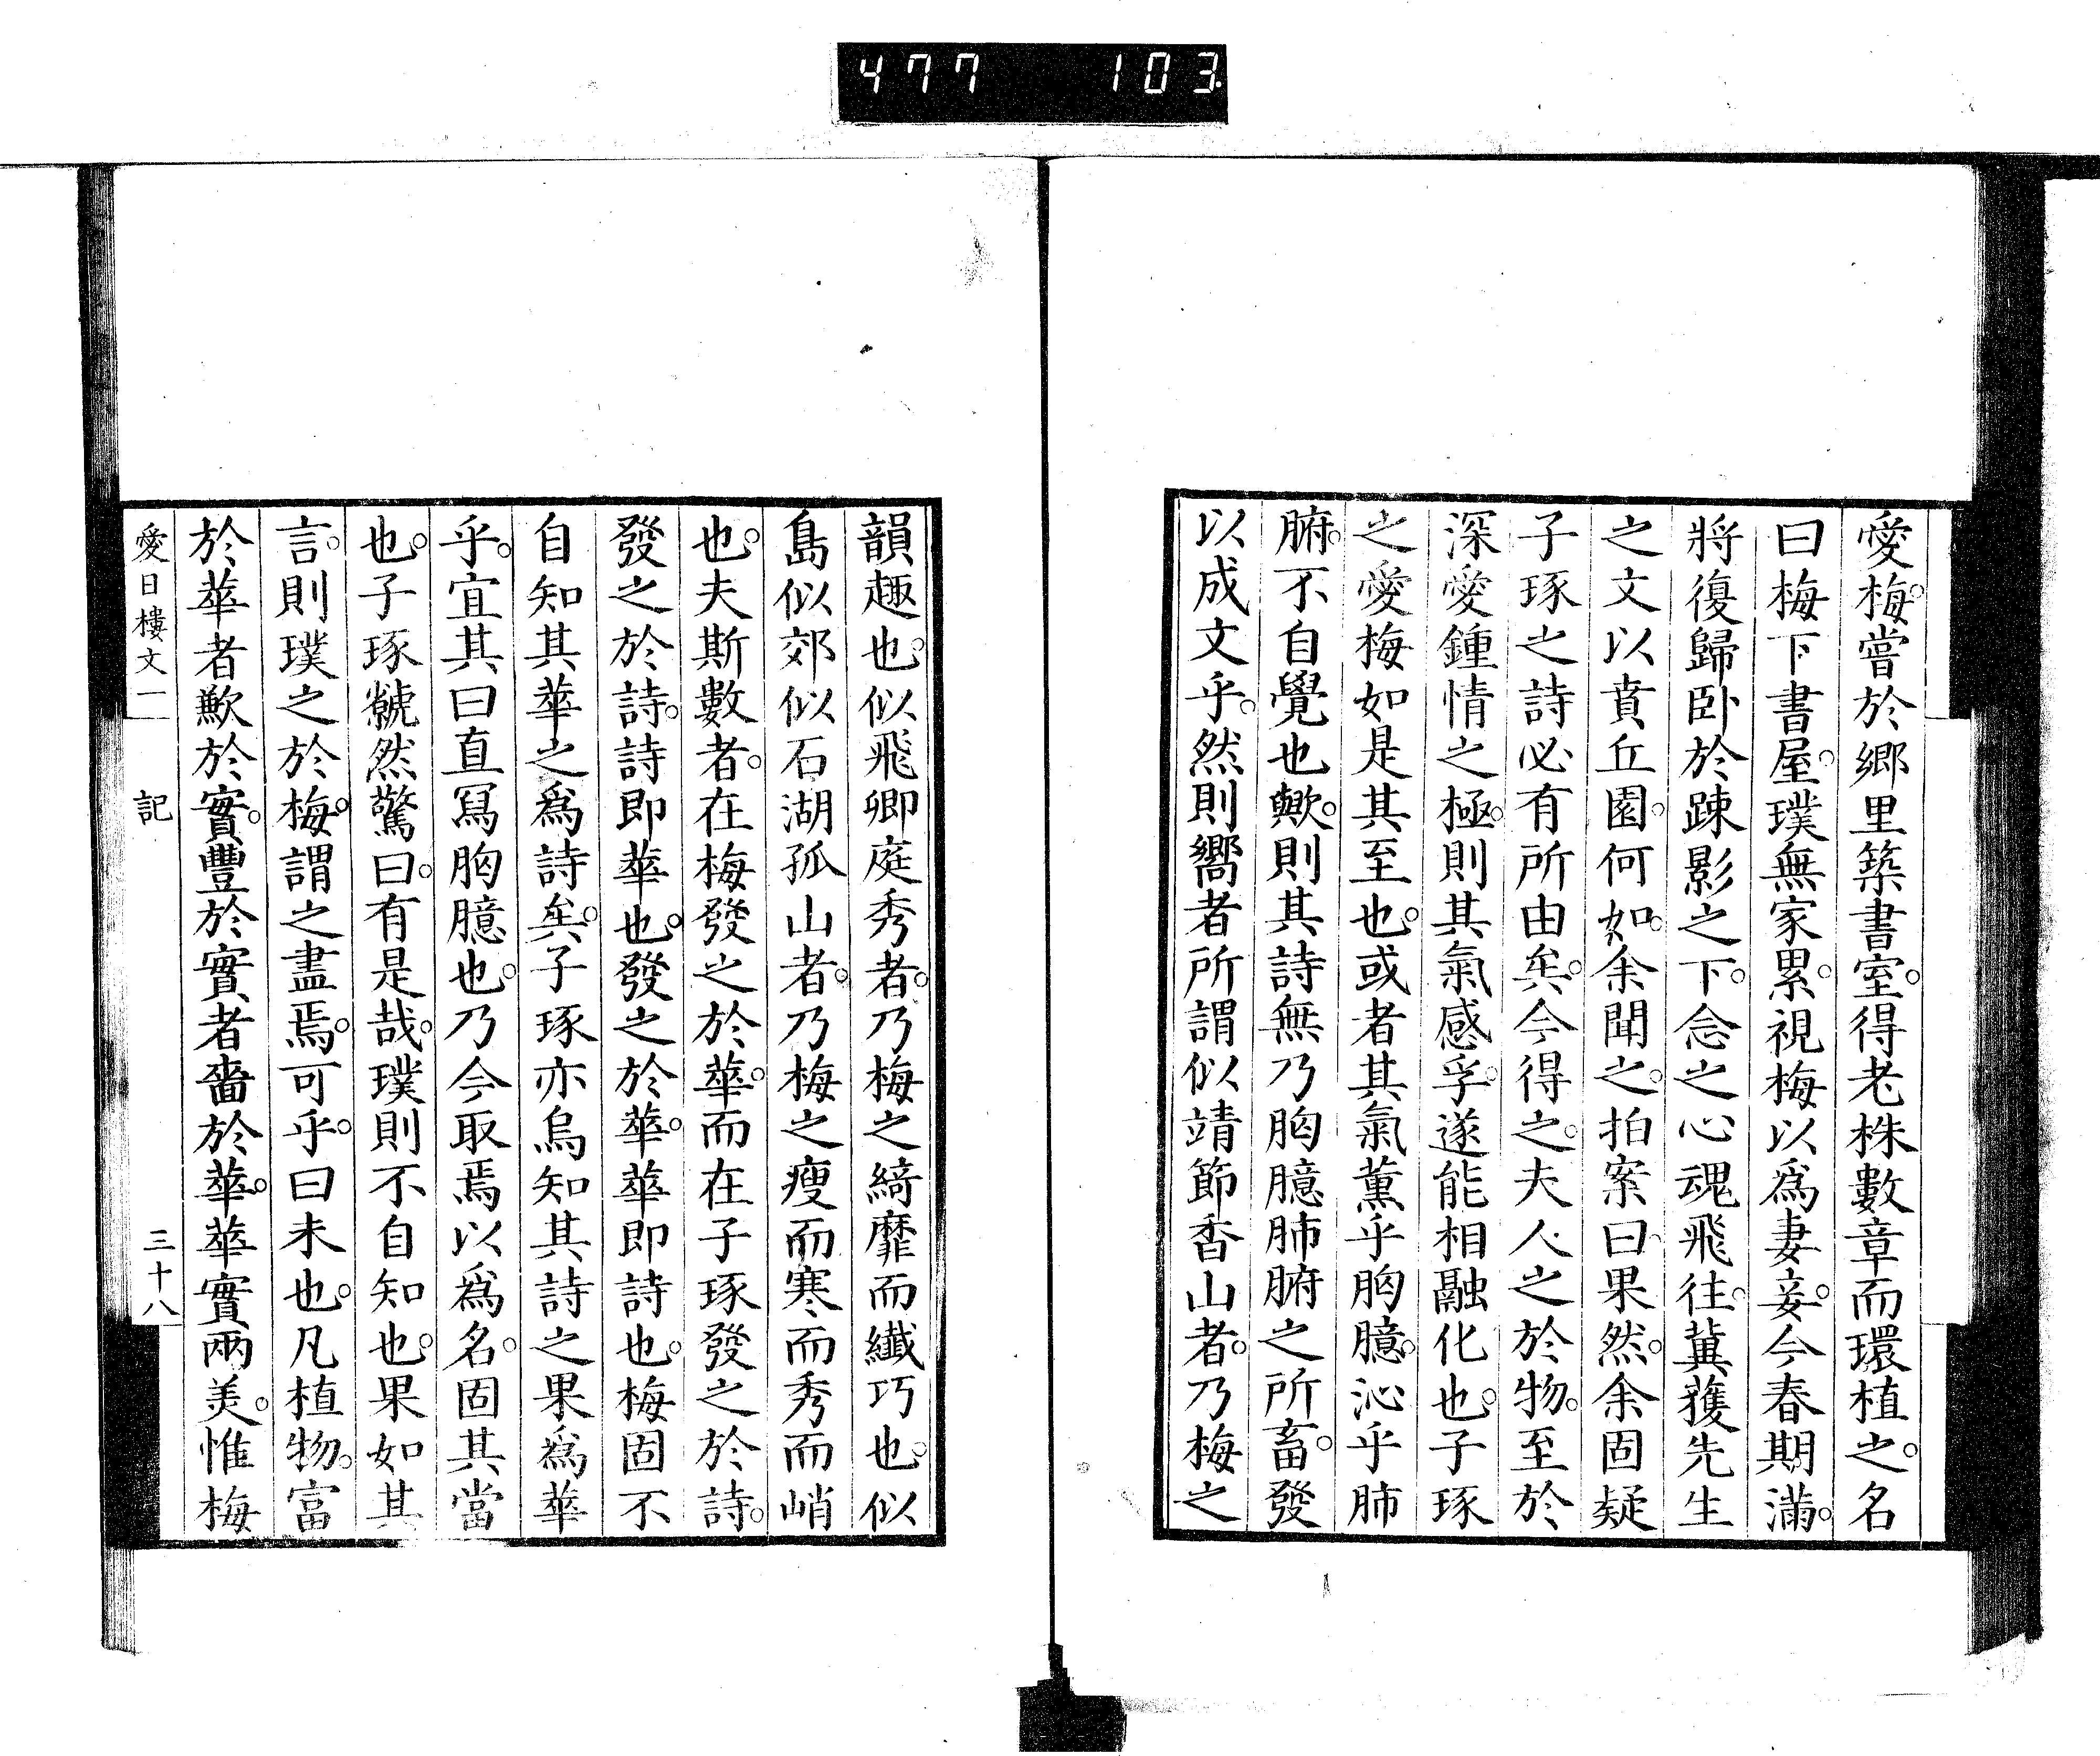 477 103
愛梅。嘗於鄉里築書室。得老株數章而環植之。名
曰梅下書屋。璞無家累。視梅以爲妻妾。今春期滿。
將復歸臥於疎影之下。念之心魂飛往。冀獲先生
之文以賁丘園。何如。余聞之。拍案曰。果然。余固疑
子琢之詩必有所由矣。今得之。夫人之於物。至於
深愛鍾情之極。則其氣感孚。遂能相融化也。子琢
之愛梅如是其至也。或者其氣薰乎胸臆。沁乎肺
腑。不自覺也歟。則其詩無乃胸臆肺腑之所畜。發
以成文乎。然則嚮者所謂似靖節香山者。乃梅之
韻趣也。似飛卿庭秀者。乃梅之綺靡而纖巧也。似
島似郊似石湖孤山者。乃梅之瘦而寒而秀而峭
也。夫斯數者。在梅發之於華。而在子琢發之於詩。
發之於詩。詩即華也。發之於華。華即詩也。梅固不
自知其華之爲詩矣。子琢亦烏知其詩之果爲華
乎。宜其曰直寫胸臆也。乃今取焉以爲名。固其當
也。子琢虩然驚曰。有是哉。璞則不自知也。果如其
言。則璞之於梅。謂之盡焉。可乎。曰未也。凡植物。富
於華者歉於實。豐於實者嗇於華。華實兩美。惟梅
愛日樓文一 記 三十八